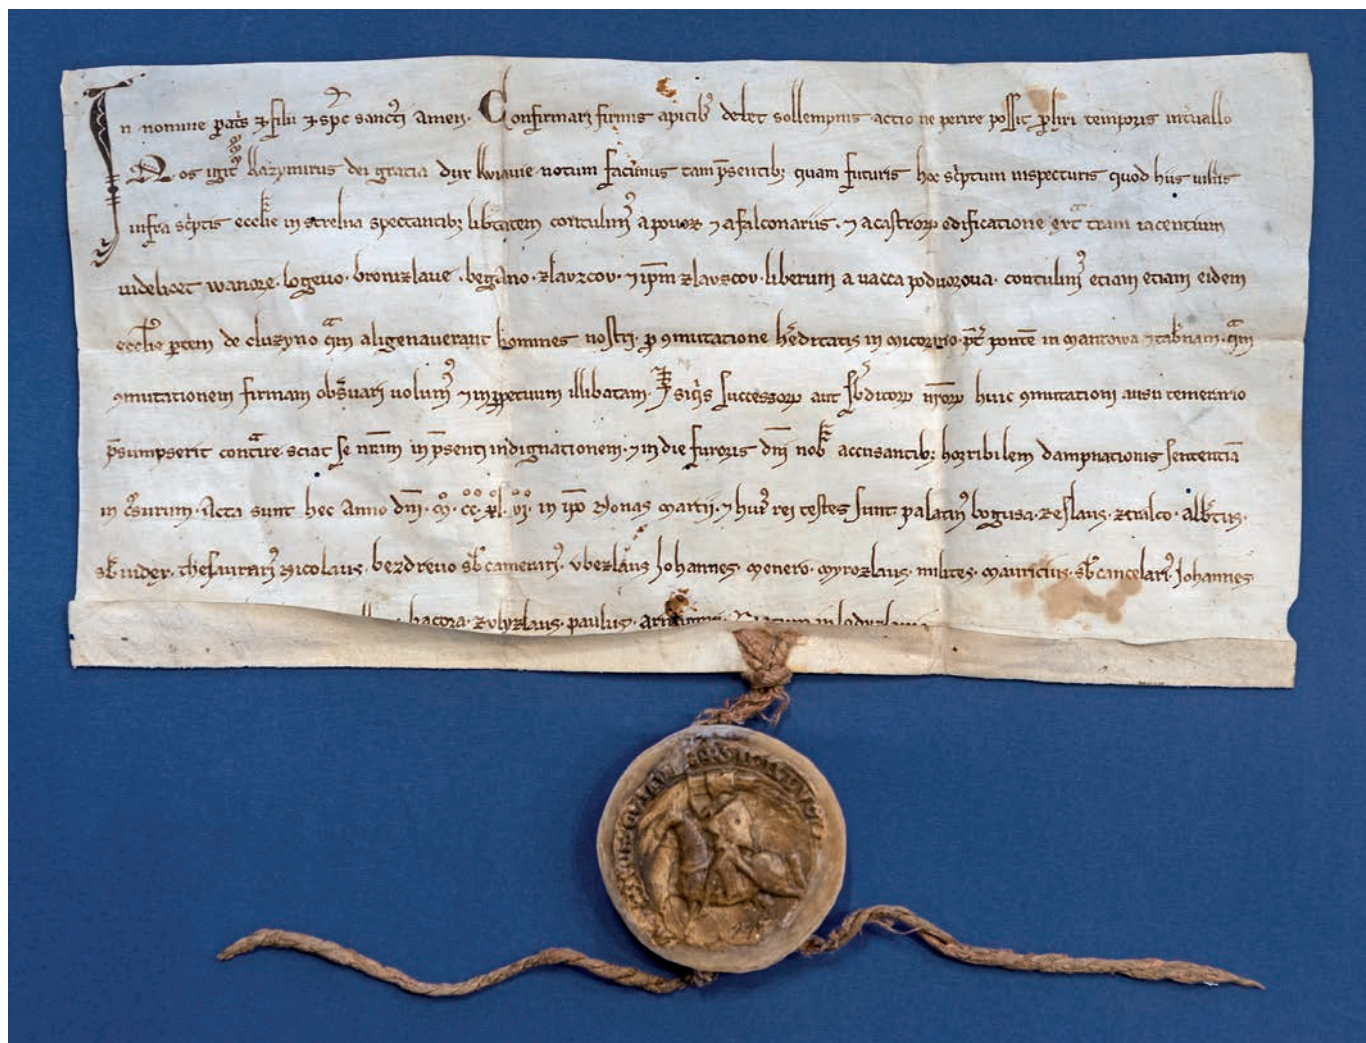 In nomine pat̄s ⁊ filii ⁊ sp̄c sancti amen. Confirmari firmis apicib; debet sollempnis actio ne perire possit p̱lixi temporis int̾uallo
Nos igit̾ kazymirus dei gracia dux kuiauie notum facimus tam p̄sentib; quam futuris hoc sc̾ptum inspecturis quod hiis uillis
infra sc̾ptis eccl̄ie in strelna spectantib; lib̾tatem contulim᾿ a pouoz ⁊ a falconariis. ⁊ a castroꝝ edificatione ext̾ t̾ram iacentium
uidelicet wanoze. bogeuo. bronizlaue. begano. zlauzcov. ⁊ ip̄m zlauzcov. liberum a uacca poduoroua. contulim᾿ etiam etiam eidem
eccl̄ie p̱tem de cluzyno q̄m aligenauerant homines nostri. p̱ ꝯmutatione h̾editatis in p̄t̾ pontē in mantowa ⁊ tab̾nam. q̄m
ꝯmutationem firmam obs̾uari uolum᾿ ⁊ inp̱petuum illibatam. siq̾s successoꝝ aut sb̾ditoꝝ nr̄oꝝ huic ꝯmutationi ausu temerario
p̄sumpserit cont̾ire. sciat se nr̄am in p̄senti indignationem. ⁊ in die furoris dn̄i nob̾ accusantib; horribilem dampnationis sententiā
in c̾surum. Acta sunt hec Anno dn̄i. m̊. cc̊. xl̊. vi̊. in ip̄o Nonas martii. ⁊ hui᾿ rei testes sunt. palatin᾿ bogusa. zeslaus. alb̾tus.
sb̾ iudex. thesaurari᾿ Nicolaus. bezdreuo sb̾ camerari᾿. vbezlaus Johannes. myrozlaus. milites. mauricius. sb̾ cancelari᾿. Johannes
bacora. zvlyzlaus. paulus.